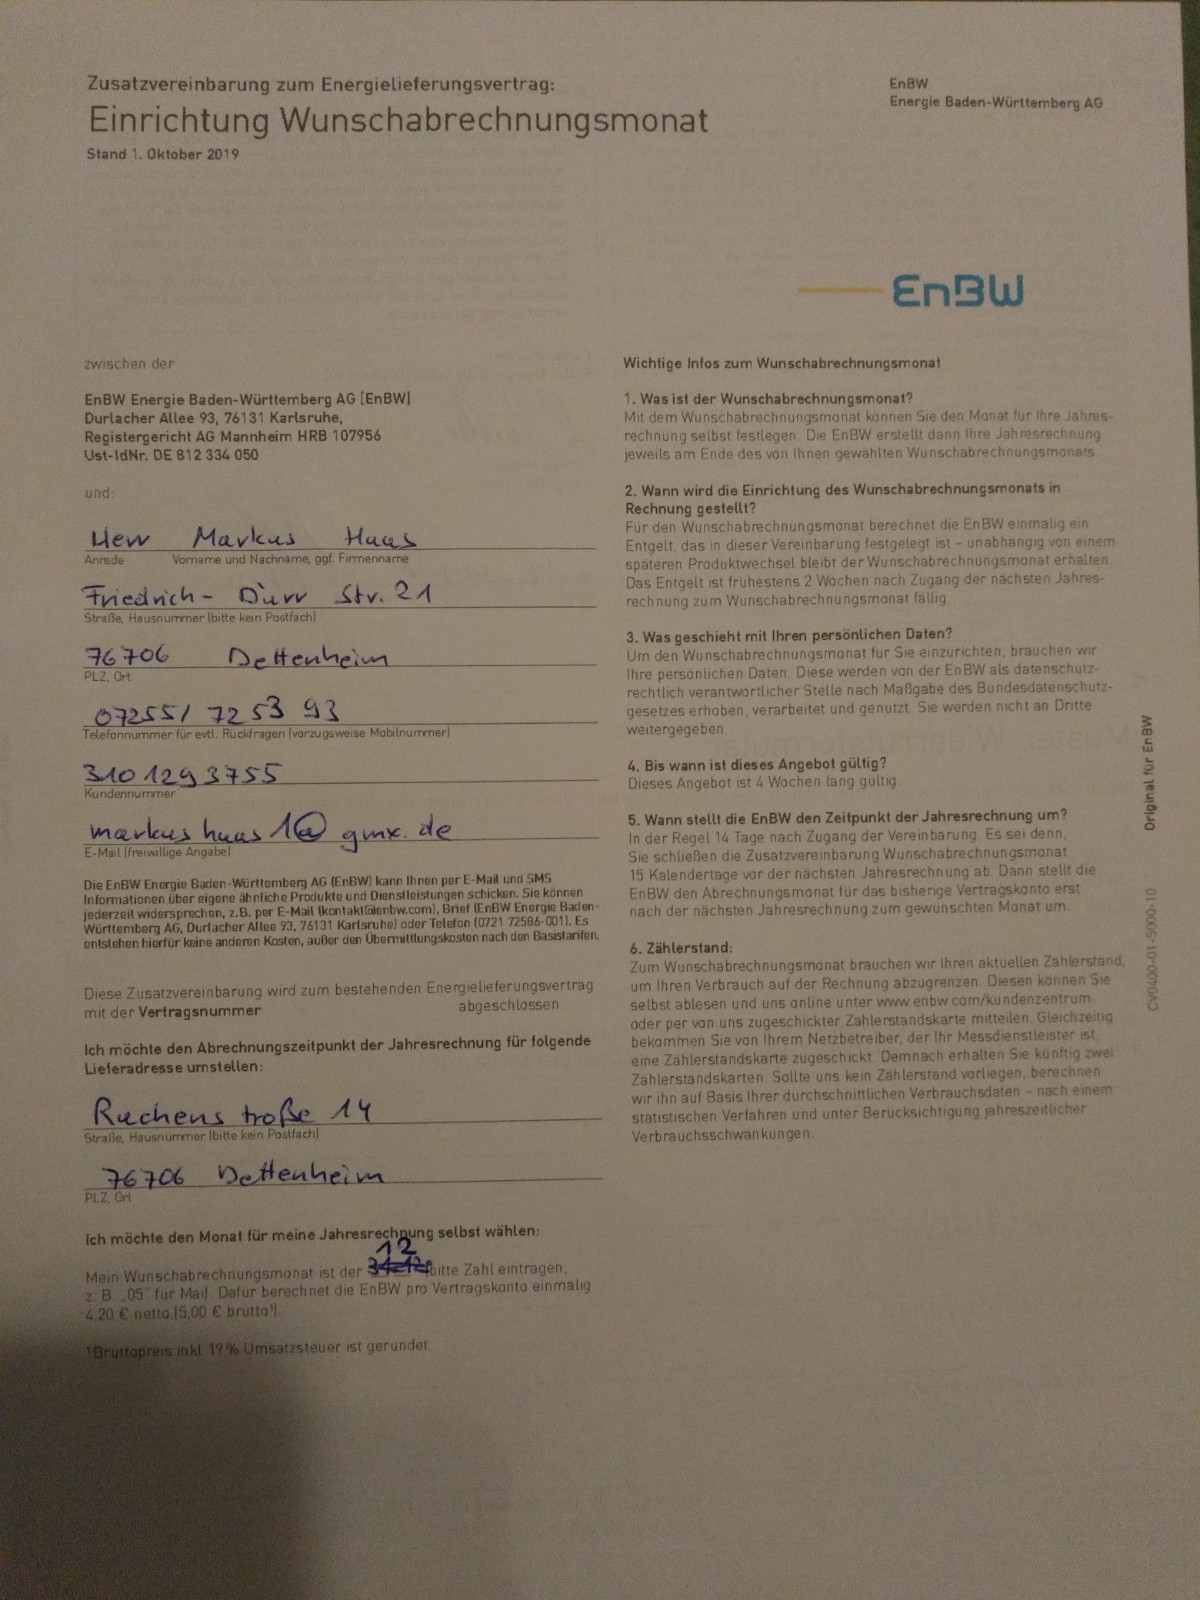 Zusatzvereinbarung zum Energielieferungsvertrag:
Einrichtung Wunschabrechnungsmonat
Stand 1. Oktober 2019
EnBW
Energie Baden-Württemberg AG
EnBW
zwischen der
EnBW Energie Baden-Württemberg AG (EnBW)
Durlacher Allee 93, 76131 Karlsruhe,
Registergericht AG Mannheim HRB 107956
Ust-IdNr. DE 812 334 050
und:
Herr Markus Haas
Anrede Vorname und Nachname, ggf. Firmenname
Friedrich- Dürr Str. 21
Straße, Hausnummer (bitte kein Postfach)
76706 Dettenheim
PLZ, Ort
07255/ 7253 93
Telefonnummer für evtl. Rückfragen (vorzugsweise Mobilnummer)
3101293755
Kundennummer
markus haas 1@ gmx. de
E-Mail (freiwillige Angabe)
Die EnBW Energie Baden-Württemberg AG (EnBW) kann Ihnen per E-Mail und SMS
Informationen über eigene ähnliche Produkte und Dienstleistungen schicken. Sie können
jederzeit widersprechen, z.B. per E-Mail (kontakt@enbw.com), Brief (EnBW Energie Baden-
Württemberg AG, Durlacher Allee 93, 76131 Karlsruhe) oder Telefon (0721 72586-001). Es
entstehen hierfür keine anderen Kosten, außer den Übermittlungskosten nach den Basistarifen.
Diese Zusatzvereinbarung wird zum bestehenden Energielieferungsvertrag
mit der Vertragsnummer abgeschlossen
Ich möchte den Abrechnungszeitpunkt der Jahresrechnung für folgende
Lieferadresse umstellen:
Ruchenstraße 14
Straße, Hausnummer (bitte kein Postfach)
76706 Dettenheim
PLZ, Ort
Ich möchte den Monat für meine Jahresrechnung selbst wählen:
12
Mein Wunschabrechnungsmonat ist der (bitte Zahl eintragen,
z. B. „05" für Mai). Dafür berechnet die EnBW pro Vertragskonto einmalig
4,20 € netto (5,00 € brutto¹).
¹Bruttopreis inkl. 19 % Umsatzsteuer ist gerundet.
Wichtige Infos zum Wunschabrechnungsmonat
1. Was ist der Wunschabrechnungsmonat?
Mit dem Wunschabrechnungsmonat können Sie den Monat für Ihre Jahres-
rechnung selbst festlegen. Die EnBW erstellt dann Ihre Jahresrechnung
jeweils am Ende des von Ihnen gewählten Wunschabrechnungsmonats.
2. Wann wird die Einrichtung des Wunschabrechnungsmonats in
Rechnung gestellt?
Für den Wunschabrechnungsmonat berechnet die EnBW einmalig ein
Entgelt, das in dieser Vereinbarung festgelegt ist – unabhängig von einem
späteren Produktwechsel bleibt der Wunschabrechnungsmonat erhalten.
Das Entgelt ist frühestens 2 Wochen nach Zugang der nächsten Jahres-
rechnung zum Wunschabrechnungsmonat fällig.
3. Was geschieht mit Ihren persönlichen Daten?
Um den Wunschabrechnungsmonat für Sie einzurichten, brauchen wir
Ihre persönlichen Daten. Diese werden von der EnBW als datenschutz-
rechtlich verantwortlicher Stelle nach Maßgabe des Bundesdatenschutz-
gesetzes erhoben, verarbeitet und genutzt. Sie werden nicht an Dritte
weitergegeben.
4. Bis wann ist dieses Angebot gültig?
Dieses Angebot ist 4 Wochen lang gültig.
5. Wann stellt die EnBW den Zeitpunkt der Jahresrechnung um?
In der Regel 14 Tage nach Zugang der Vereinbarung. Es sei denn,
Sie schließen die Zusatzvereinbarung Wunschabrechnungsmonat
15 Kalendertage vor der nächsten Jahresrechnung ab. Dann stellt die
EnBW den Abrechnungsmonat für das bisherige Vertragskonto erst
nach der nächsten Jahresrechnung zum gewünschten Monat um.
6. Zählerstand:
Zum Wunschabrechnungsmonat brauchen wir Ihren aktuellen Zählerstand,
um Ihren Verbrauch auf der Rechnung abzugrenzen. Diesen können Sie
selbst ablesen und uns online unter www.enbw.com/kundenzentrum
oder per von uns zugeschickter Zählerstandskarte mitteilen. Gleichzeitig
bekommen Sie von Ihrem Netzbetreiber, der Ihr Messdienstleister ist,
eine Zählerstandskarte zugeschickt. Demnach erhalten Sie künftig zwei
Zählerstandskarten. Sollte uns kein Zählerstand vorliegen, berechnen
wir ihn auf Basis Ihrer durchschnittlichen Verbrauchsdaten – nach einem
statistischen Verfahren und unter Berücksichtigung jahreszeitlicher
Verbrauchsschwankungen.
Original für EnBW
CV0400-01-S000-10